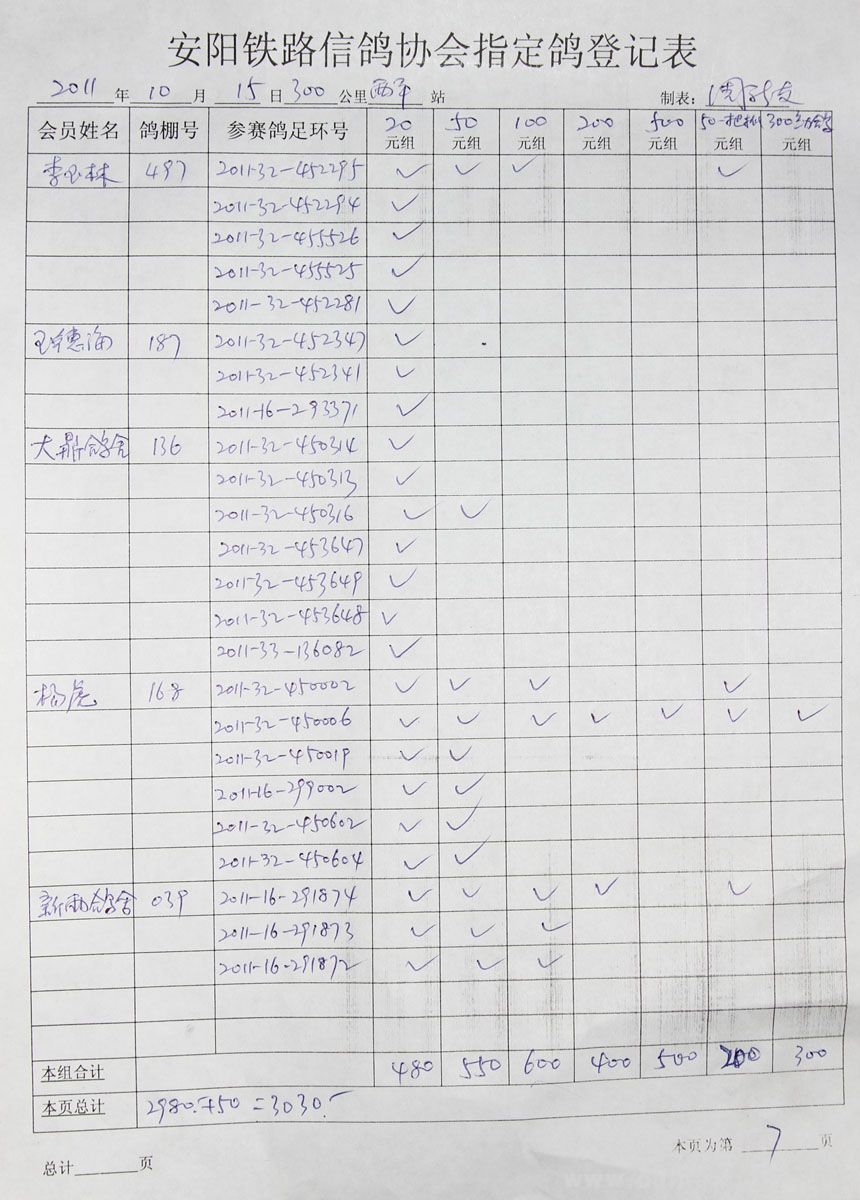 安阳铁路信鸽协会指定鸽登记表
2011年 10月 15日 300公里 西平 站 制表：
会员姓名 鸽棚号 参赛鸽足环号 20元组 50元组 100元组 200元组 500元组 50一把抓元组 300元组
李玉林 497 2011-32-452295 ✓ ✓ ✓ ✓
2011-32-452294 ✓
2011-32-455526 ✓
2011-32-455525 ✓
2011-32-452281 ✓
王德海 187 2011-32-452347 ✓
2011-32-452341 ✓
2011-16-293371 ✓
大鼎鸽舍 136 2011-32-450314 ✓
2011-32-450313 ✓
2011-32-450316 ✓ ✓
2011-32-453647 ✓
2011-32-453649 ✓
2011-32-453648 ✓
2011-33-136082 ✓
杨虎 168 2011-32-450002 ✓ ✓ ✓ ✓
2011-32-450006 ✓ ✓ ✓ ✓ ✓ ✓ ✓
2011-32-450019 ✓ ✓
2011-16-299002 ✓ ✓
2011-32-450602 ✓ ✓
2011-32-450604 ✓ ✓
新雨鸽舍 039 2011-16-291874 ✓ ✓ ✓ ✓ ✓
2011-16-291873 ✓ ✓ ✓
2011-16-291872 ✓ ✓ ✓
本组合计 480 550 600 400 500 200 300
本页总计 2980.+50=3030.-
总计 页 本页为第 7 页